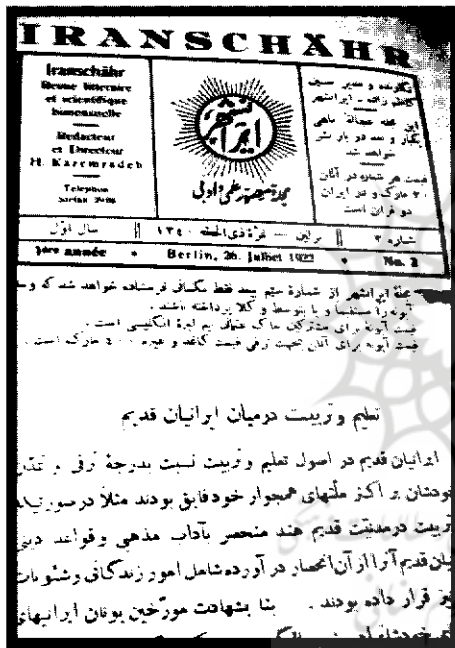 IRANSCHÄHR
Iranschähr
Revue littéraire
et scientifique
bimensuelle
Rédacteur
et Directeur
H. Kazemzadeh
Telephon
ایرانشهر
مجله‌ایست علمی و ادبی
نگارنده و مدیر
کاظم زاده ـ ایرانشهر
این مجله عجالةً ماهی
یکبار و بعد دو بار نشر
خواهد شد
قیمت هر شماره در آلمان
۳۰ مارک و در ایران
دو قران است
سال اول || برلین — غرّهٔ ذی‌الحجّه ۱۳۴۰ || شماره ۲
1ère année • Berlin, 26. Juillet 1922 • No. 2
مجلهٔ ایرانشهر از شمارهٔ سیّم ببعد فقط بکسانی فرستاده خواهد شد که وجه
آبونه را مستقیما و یا بتوسط وکلا پرداخته باشند .
قیمت آبونه برای مشترکین نیم لیرهٔ انگلیسی است .
قیمت آبونه برای آلمان ترقی قیمت کاغذ و غیره ۴۰۰ مارک است .
تعلیم و تربیت درمیان ایرانیان قدیم
ایرانیان قدیم در اصول تعلیم و تربیت نسبت بدرجهٔ ترقی و تمدّن
خودشان بر اکثر ملّتهای همجوار خود فایق بودند مثلا درصورتیکه
تربیت درمدنیّت قدیم هند منحصر بآداب مذهبی وقواعد دینی
قدیم آنرا از آن انحصار در آورده شامل امور زندگانی وشئونات
نیز قرار داده بودند . بنا بشهادت مورّخین یونان ایرانیهای